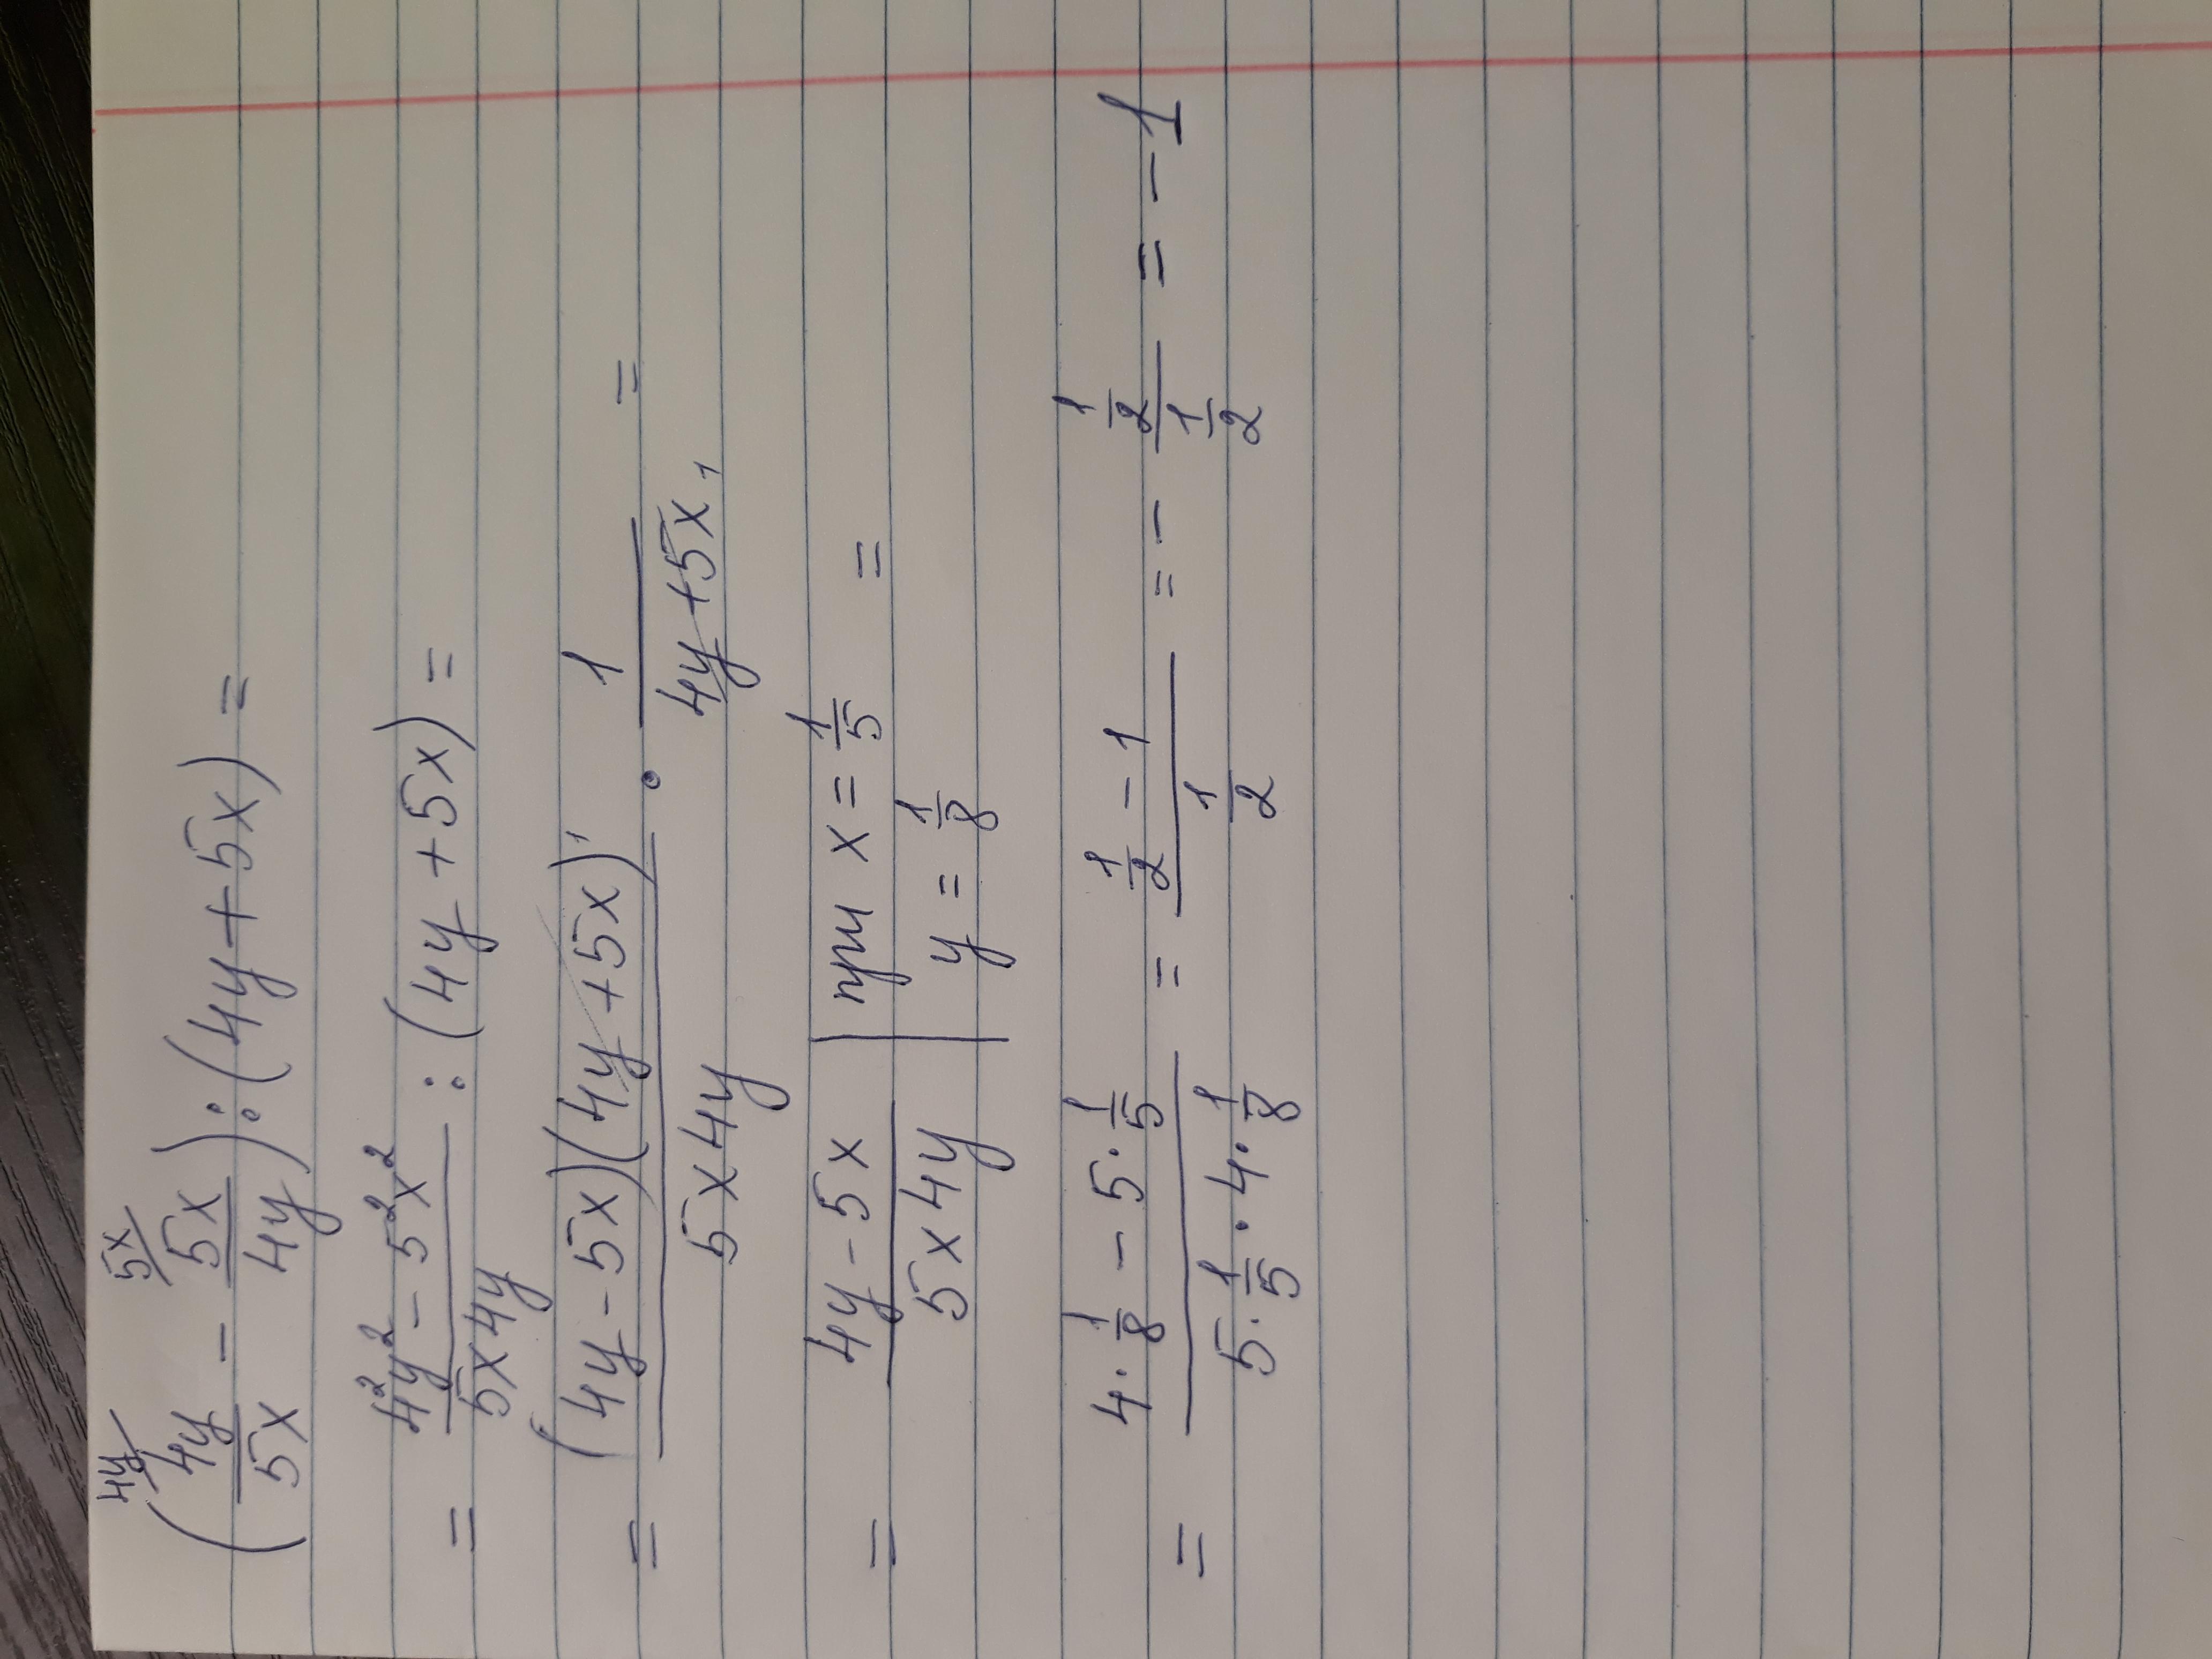 (4y/ 4y/5x - 5x/ 5x/4y) : (4y + 5x) =
= (4²y² - 5²x²)/(5x4y) : (4y + 5x) =
= ((4y - 5x)(4y + 5x)¹)/(5x4y) · 1/(4y + 5x ₁) =
= (4y - 5x)/(5x4y) | при x = 1/5 =
y = 1/8
= (4 · 1/8 - 5 · 1/5)/(5 · 1/5 · 4 · 1/8) = (1/2 - 1)/(1/2) = - (1/2)/(1/2) = - 1